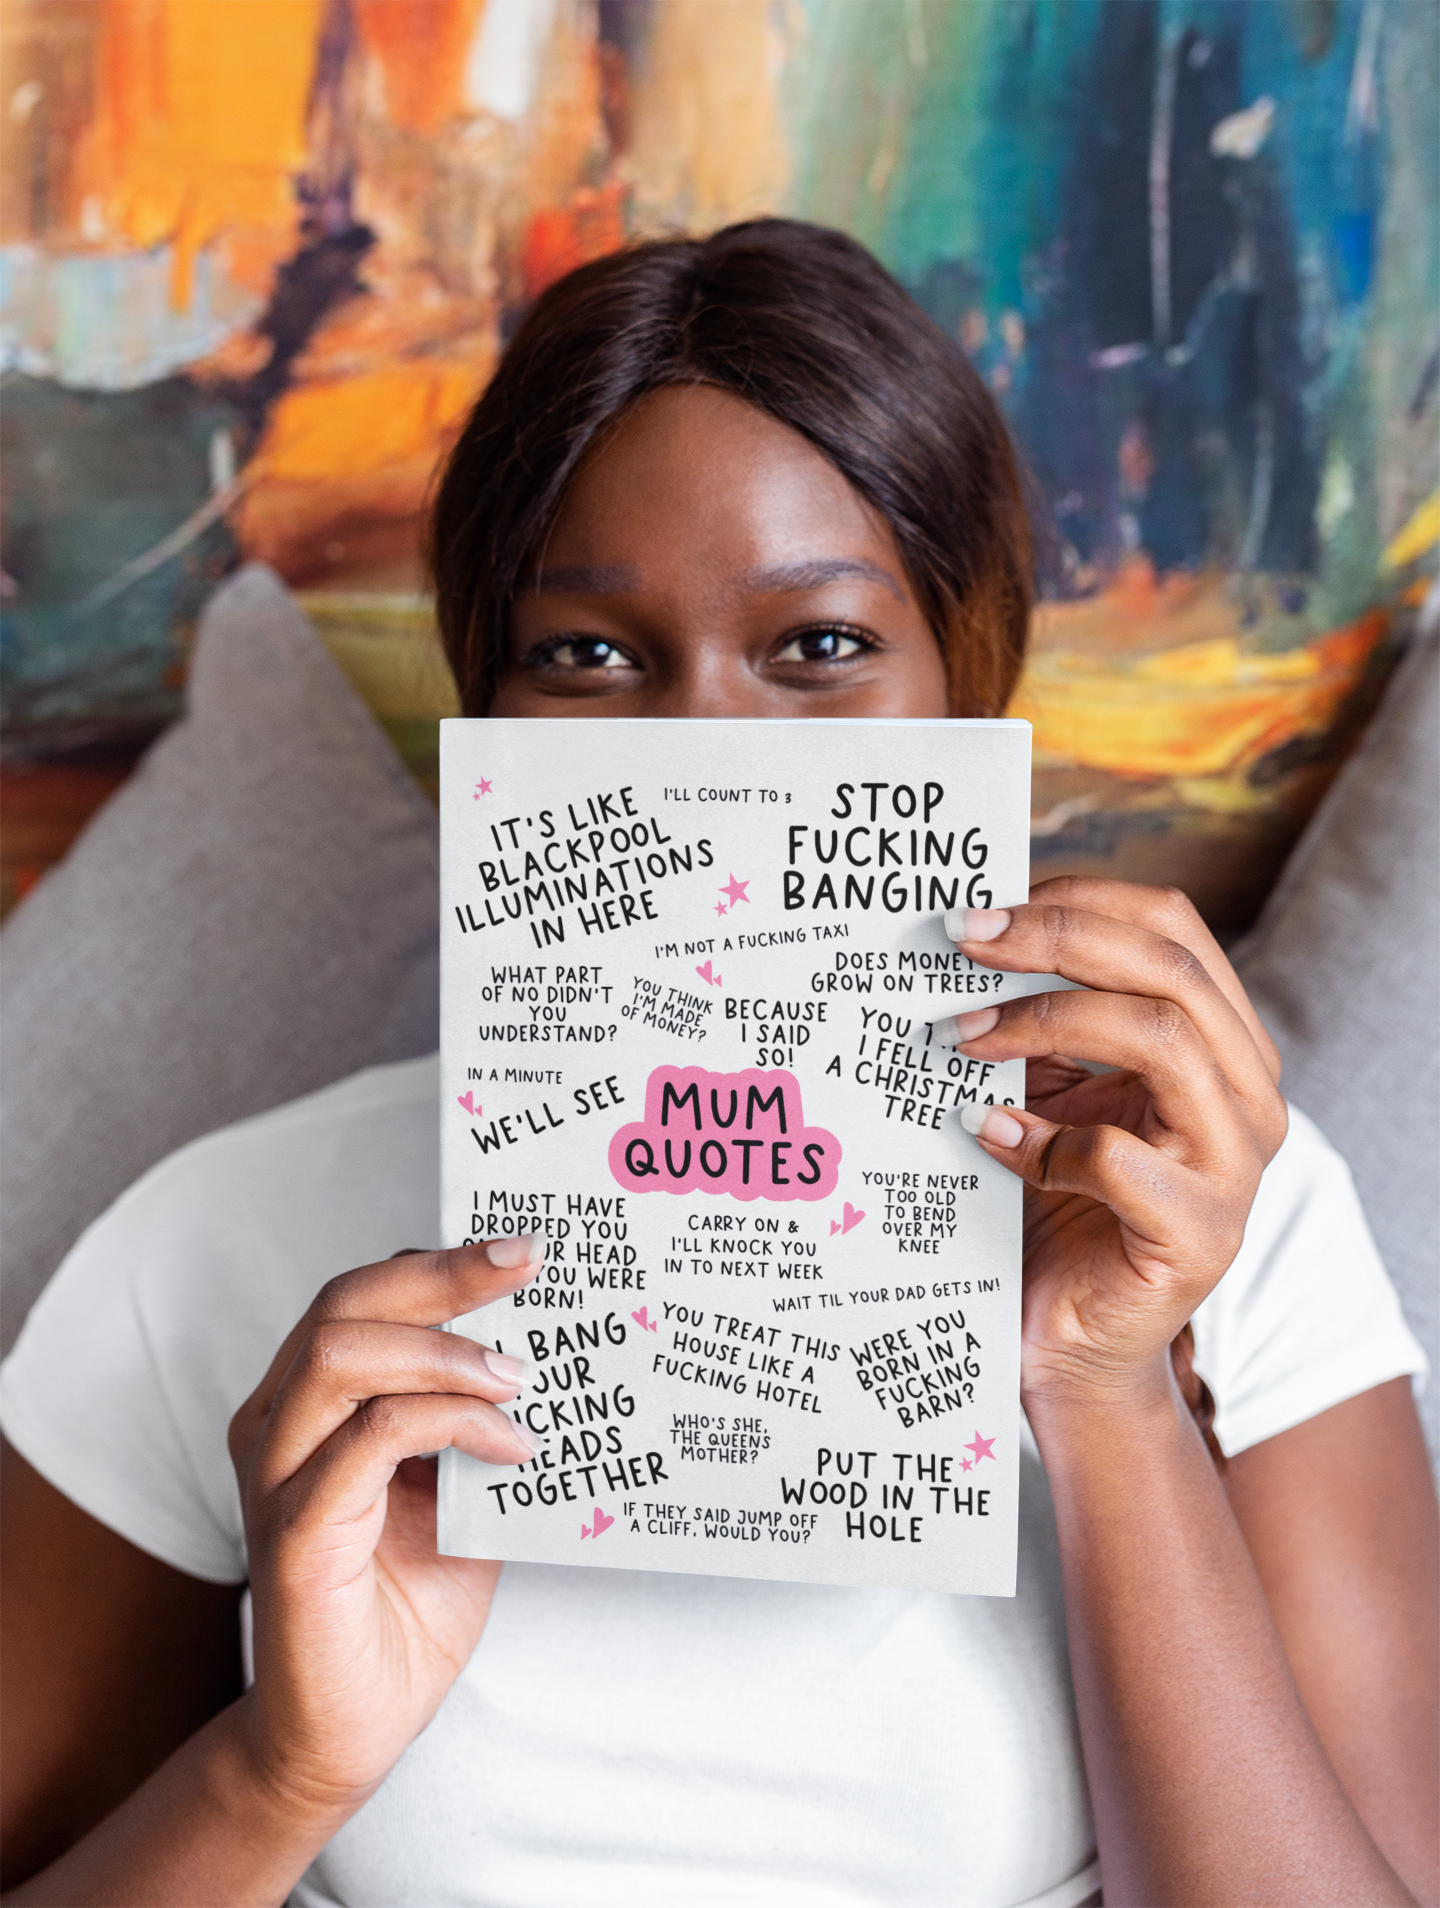 IT'S LIKE
BLACKPOOL
ILLUMINATIONS
IN HERE
I'LL COUNT TO 3
STOP
FUCKING
BANGING
I'M NOT A FUCKING TAXI
WHAT PART
OF NO DIDN'T
YOU
UNDERSTAND?
YOU THINK
I'M MADE
OF MONEY?
BECAUSE
I SAID
SO!
DOES MONEY
GROW ON TREES?
YOU
I FELL OFF
A CHRISTMAS
TREE
IN A MINUTE
WE'LL SEE
MUM
QUOTES
I MUST HAVE
DROPPED YOU
HEAD
YOU WERE
BORN!
CARRY ON &
I'LL KNOCK YOU
IN TO NEXT WEEK
YOU'RE NEVER
TOO OLD
TO BEND
OVER MY
KNEE
WAIT TIL YOUR DAD GETS IN!
BANG
TOGETHER
YOU TREAT THIS
HOUSE LIKE A
FUCKING HOTEL
WERE YOU
BORN IN A
FUCKING
BARN?
WHO'S SHE,
THE QUEENS
MOTHER?
PUT THE
WOOD IN THE
HOLE
IF THEY SAID JUMP OFF
A CLIFF, WOULD YOU?